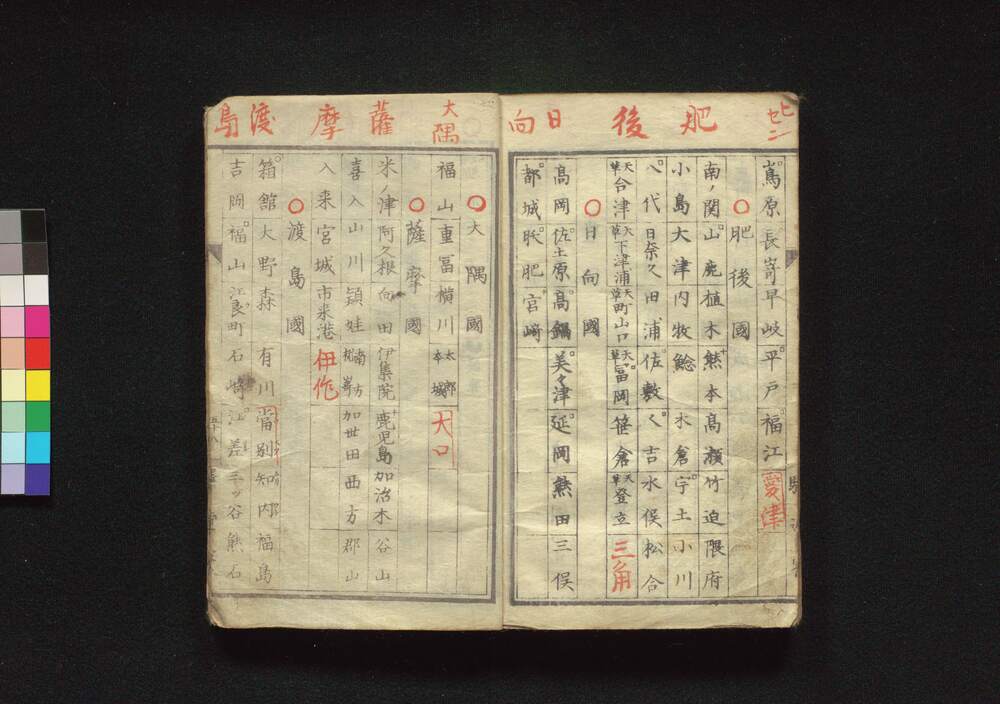 ヒセン
肥後
日向
嶌原 長嵜 早岐 平戸 福江 愛津
○肥後國
南ノ関 山鹿 植木 熊本 高瀬 竹迫 隈府
小島 大津 内牧 鯰 水倉 宇土 小川
八代 日奈久 田浦 佐敷 く 吉 水俣 松合
天草合津 天草下津浦 天草町山口 天草冨岡 笹倉 天草登立 三角
○日向國
高岡 佐土原 高鍋 美々津 延岡 熊田 三俣
都城 飫肥 宮崎
大隅
薩摩
渡島
○大隅國
福山 重冨 横川 太郎 本城 大口
○薩摩國
米ノ津 阿久根 向田 伊集院 鹿児島 加治木 谷山
喜入 山川 頴娃 南方 加世田 西方 郡山
入来 宮城 市来港 伊作
○渡島國
箱館 大野 森 有川 當別 知内 福島
吉岡 福山 江良町 石崎 江差 三ツ谷 熊石